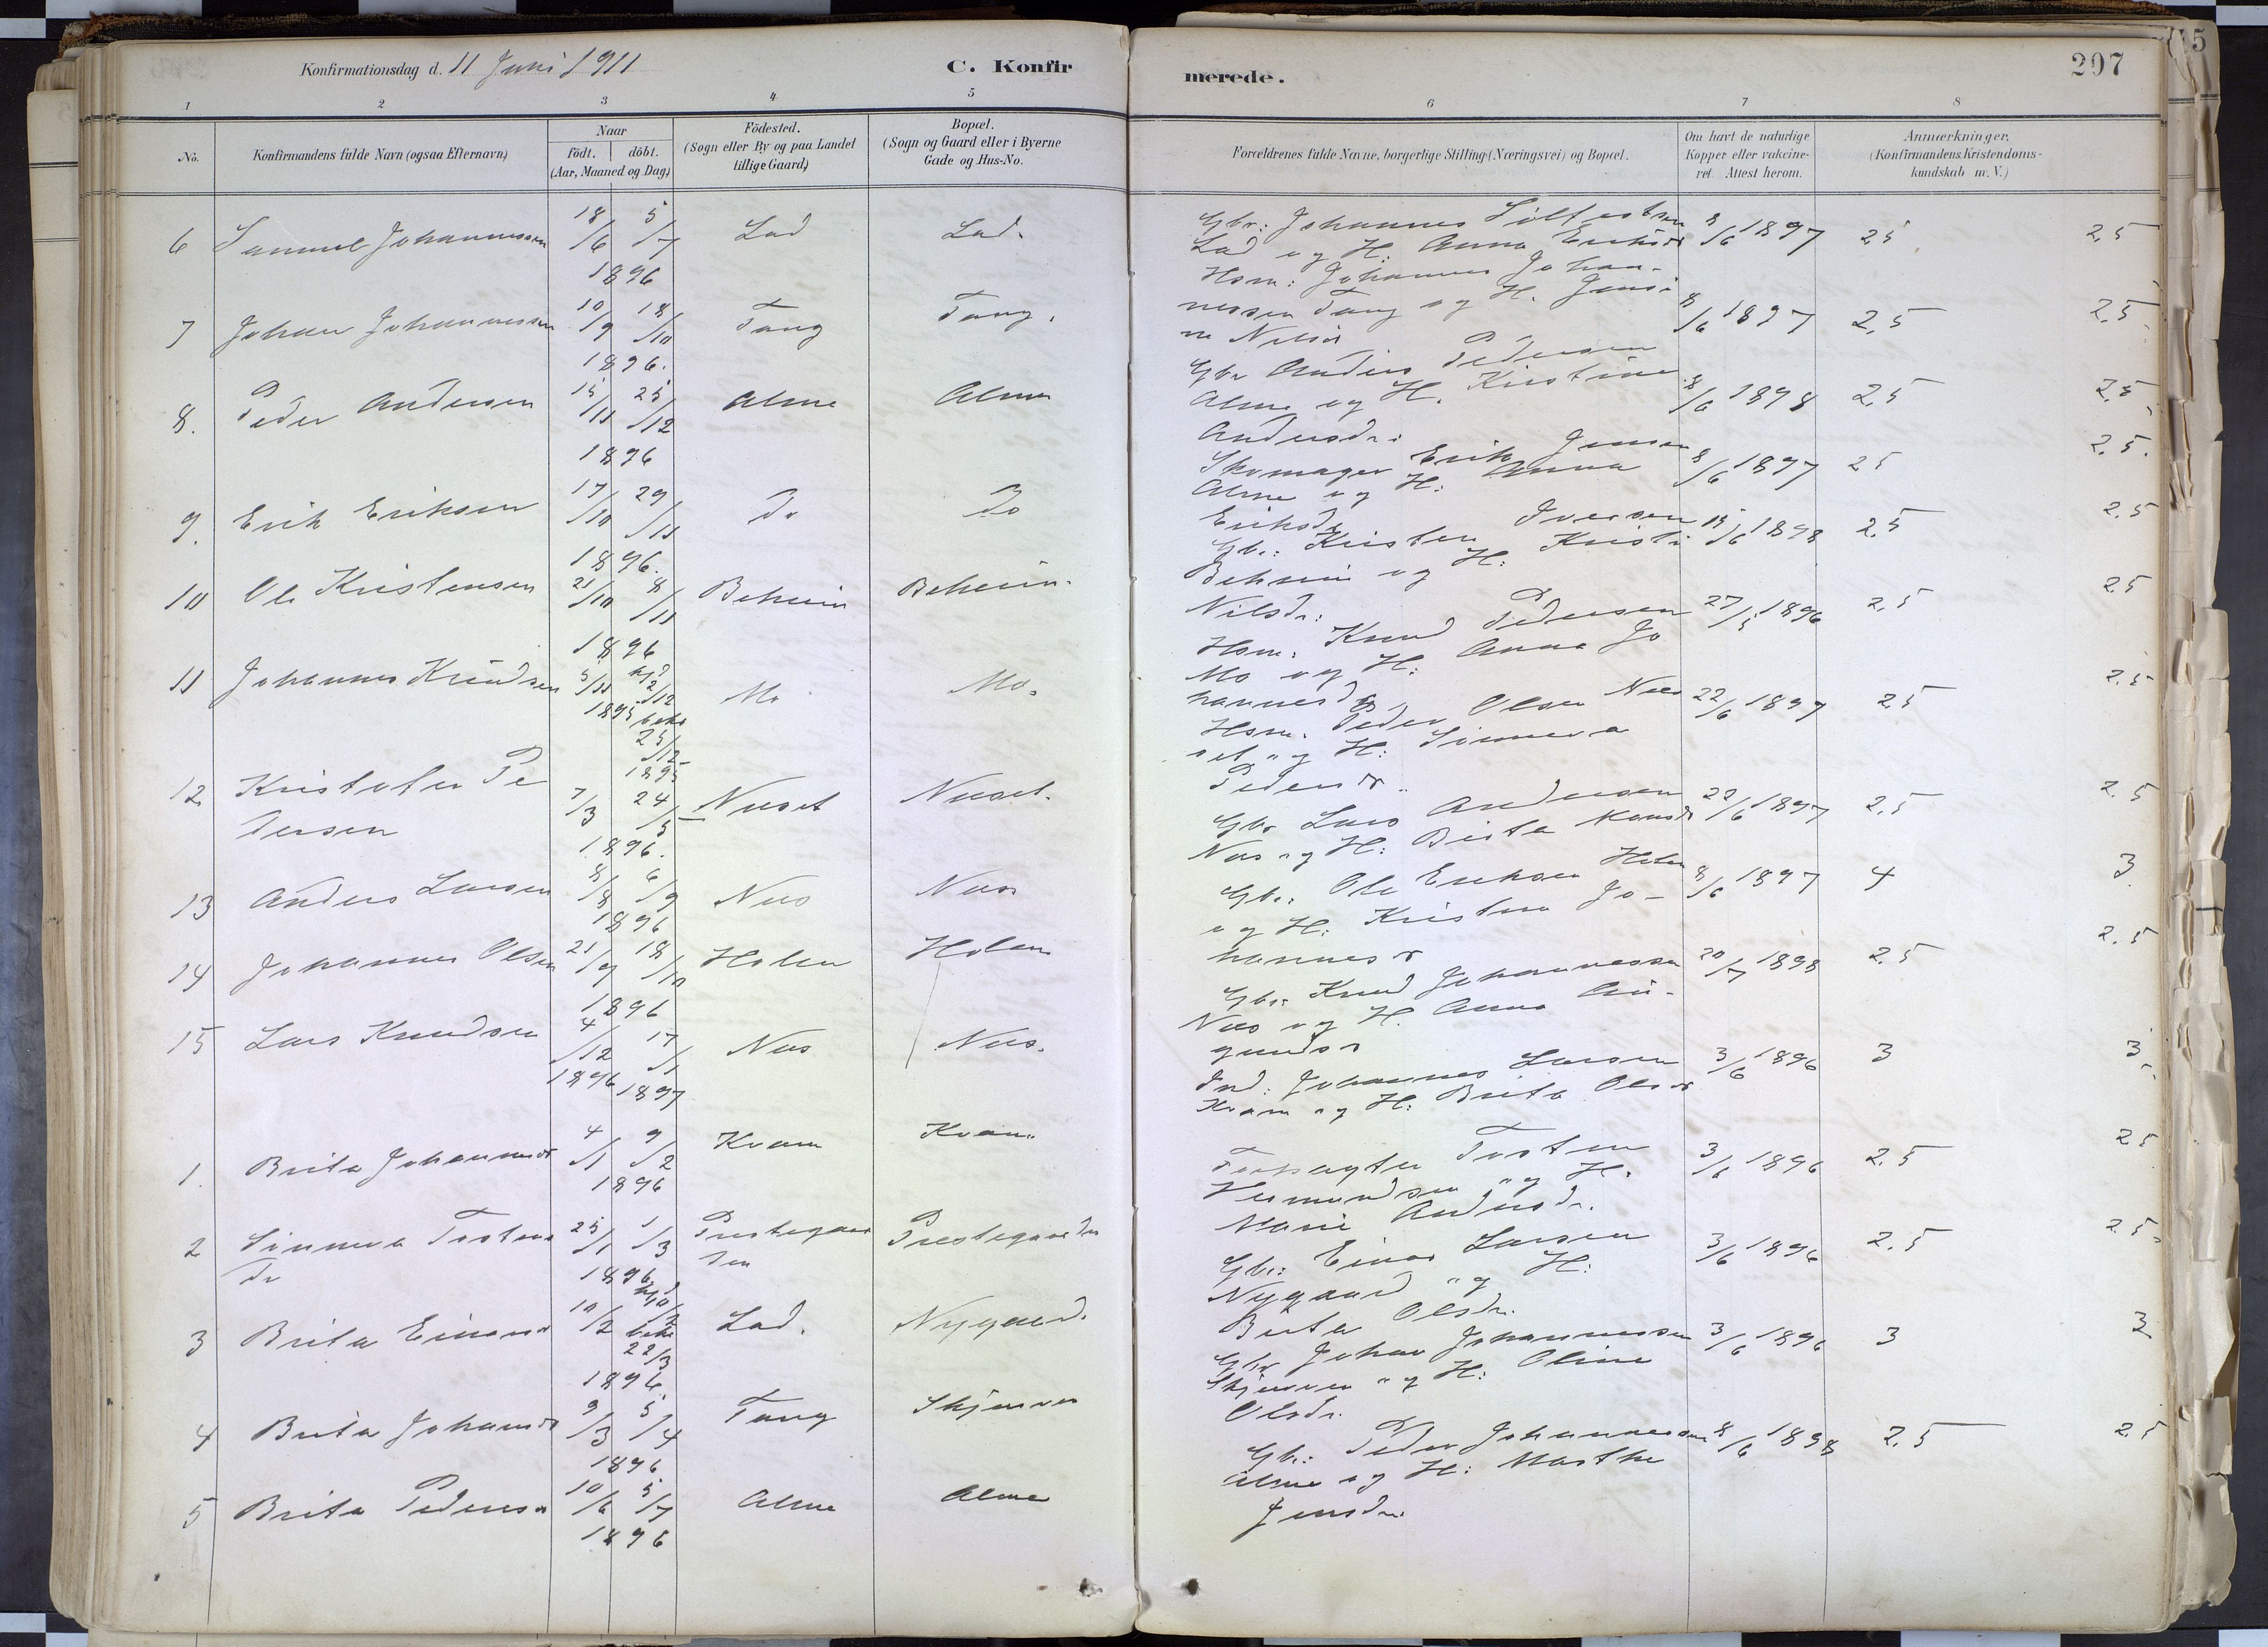 Konfirmationsdag d. 11 Juni 1911
C. Konfirmerede.
207
1 2 3 4 5 6 7 8
No.
Konfirmandens fulde Navn (ogsaa Efternavn)
Naar
født. døbt.
(Aar, Maaned og Dag)
Födested.
(Sogn eller By og paa Landet
tillige Gaard)
Bopæl.
(Sogn og Gaard eller i Byerne
Gade og Hus-No.
Forældrenes fulde Navne, borgerlige Stilling (Næringsvei) og Bopæl.
Om havt de naturlige
Kopper eller vakcine-
ret. Attest herom.
Anmærkninger,
(Konfirmandens Kristendoms-
kundskab m. V.)
6 Samuel Johannessen 18/6 5/7 1896 Lad Lad.
Gbr: Johannes Lad og H: Anna Eriksdr 8/6 1897 2.5 2.5
7 Johan Johannessen 10/9 18/10 1896. Tang Tang.
Hsm: Johannes Johannessen Tang og H. Jensine Nilsdr 8/6 1897 2.5 2.5
8. Peder Andersen 15/11 25/12 1896 Alme Alme
Gbr Anders Pedersen Alme og H. Kirstine Andersdr: 8/6 1898 2.5 2.5
9. Erik Eriksen 17/10 29/11 1896. Do Do
Skomager Erik Jensen Alme og H: Anna Eriksdr 8/6 1897 2.5 2.5.
10 Ole Kristensen 21/10 8/11 1896 Beheim Beheim.
Gbr: Kristen Iversen Beheim og H: Kristi Nilsdr: 15/6 1898 2.5 2.5
11 Johannes Knudsen 5/11 hjd 2/12 1895 beks 25/12 1895 Mo Mo.
Hsm. Knud Pedersen Mo og H: Anna Johannesdr 27/5 1896 2.5 2.5
12 Kristofer Pedersen 7/3 24/5 1896. Neeset Neeset.
Hsm. Peder Olsen Neeset og H: Sinneva Pedersdr. 22/6 1897 2.5 2.5
13 Anders Larsen 8/8 6/9 1896 Nees Nees
Gbr Lars Andersen Nees og H: Brita Monsdr 22/6 1897 2.5 2.5
14 Johannes Olsen 21/9 18/10 1896 Holen Holen
Gbr: Ole Eriksen Holen og H: Kristina Johannesdr 8/6 1897 4 3
15 Lars Knudsen 4/12 17/1 1896 1897 Nees Nees.
Gbr: Knud Johannessen Nees og H. Anna 20/7 1898 2.5 2.5
1. Brita Johannesdr 4/1 9/2 1896 Kvam Kvam
Ind: Johannes Larsen Kvam og H: Brita Olsdr 3/6 1896 3 3
2 Sinneva Tostensdr 25/1 1/3 1896 Prestegaarden Prestegaarden
Tosten Hermundsen og H. Marie Andersdr. 3/6 1896 2.5 2.5
3 Brita Einarsdr 10/2 beks 22/3 1896. Lad. Nygaard.
Gbr: Einar Larsen Nygaard og H: Brita Olsdr. 3/6 1896 2.5 2.5
4 Brita Johansdr 9/3 5/4 1896 Tang Skjerven
Gbr Johan Johannessen Skjerven og H: Oline Olsdr. 3/6 1896 3 3
5 Brita Pedersdr 10/6 5/7 1896 Alme Alme
Gbr: Peder Johannessen Alme og H: Marthe Jensdr: 8/6 1898 2.5 2.5